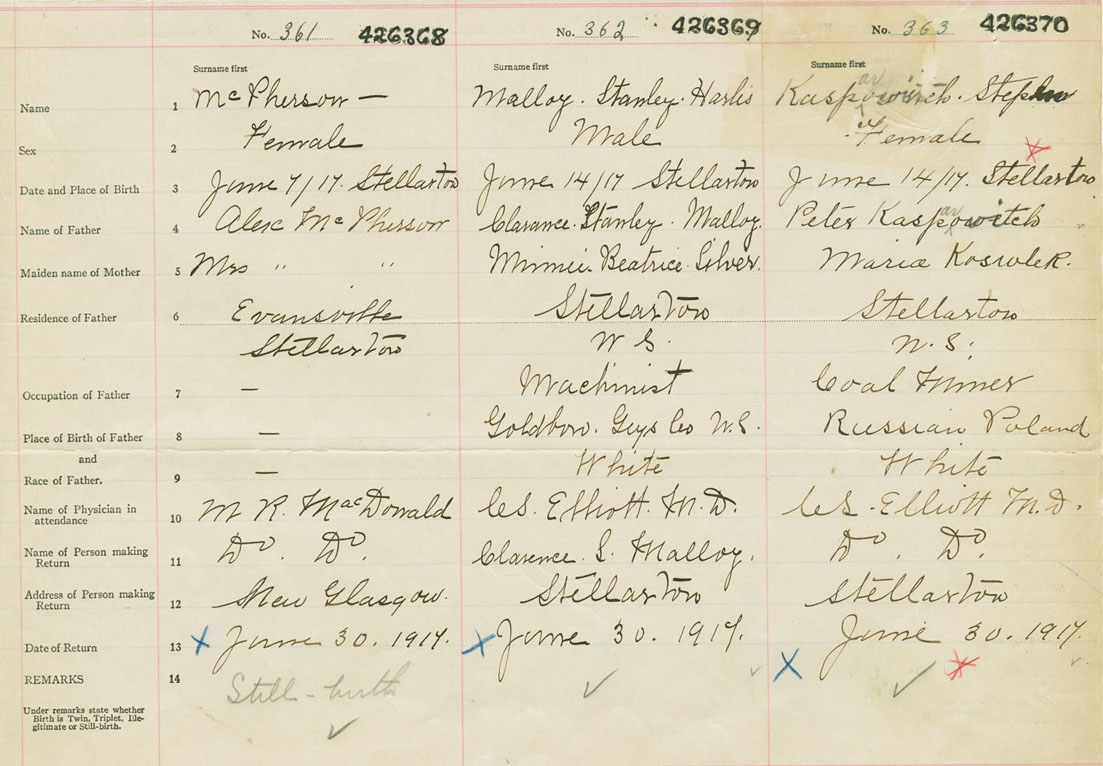 No. 361 426368 No. 362 426369 No. 363 426370
Surname first Surname first Surname first
Name 1 McPherson — Malloy. Stanley. Harlis Kaspowitch. Stephen
ar
Sex 2 Female Male Female
Date and Place of Birth 3 June 7/17. Stellarton June 14/17 Stellarton June 14/17. Stellarton
Name of Father 4 Alex McPherson Clarance. Stanley. Malloy. Peter Kaspowitch
ar
Maiden name of Mother 5 Mrs " " Minnie. Beatrice. Silver. Maria
Residence of Father 6 Evansville Stellarton Stellarton
Stellarton N.S. N.S.
Occupation of Father 7 — Machinist Coal Miner
Place of Birth of Father 8 — Goldboro. Guys Co N.S. Russian Poland
and
Race of Father. 9 — White White
Name of Physician in
attendance 10 M R. MacDonald C.S. Elliott. M.D. C.S. Elliott M.D.
Name of Person making
Return 11 Do. Do. Clarence. S. Malloy. Do. Do.
Address of Person making
Return 12 New Glasgow. Stellarton Stellarton
Date of Return 13 June 30. 1917. June 30. 1917. June 30. 1917.
REMARKS 14 Still-birth
Under remarks state whether
Birth is Twin, Triplet, Ille-
gitimate or Still-birth.